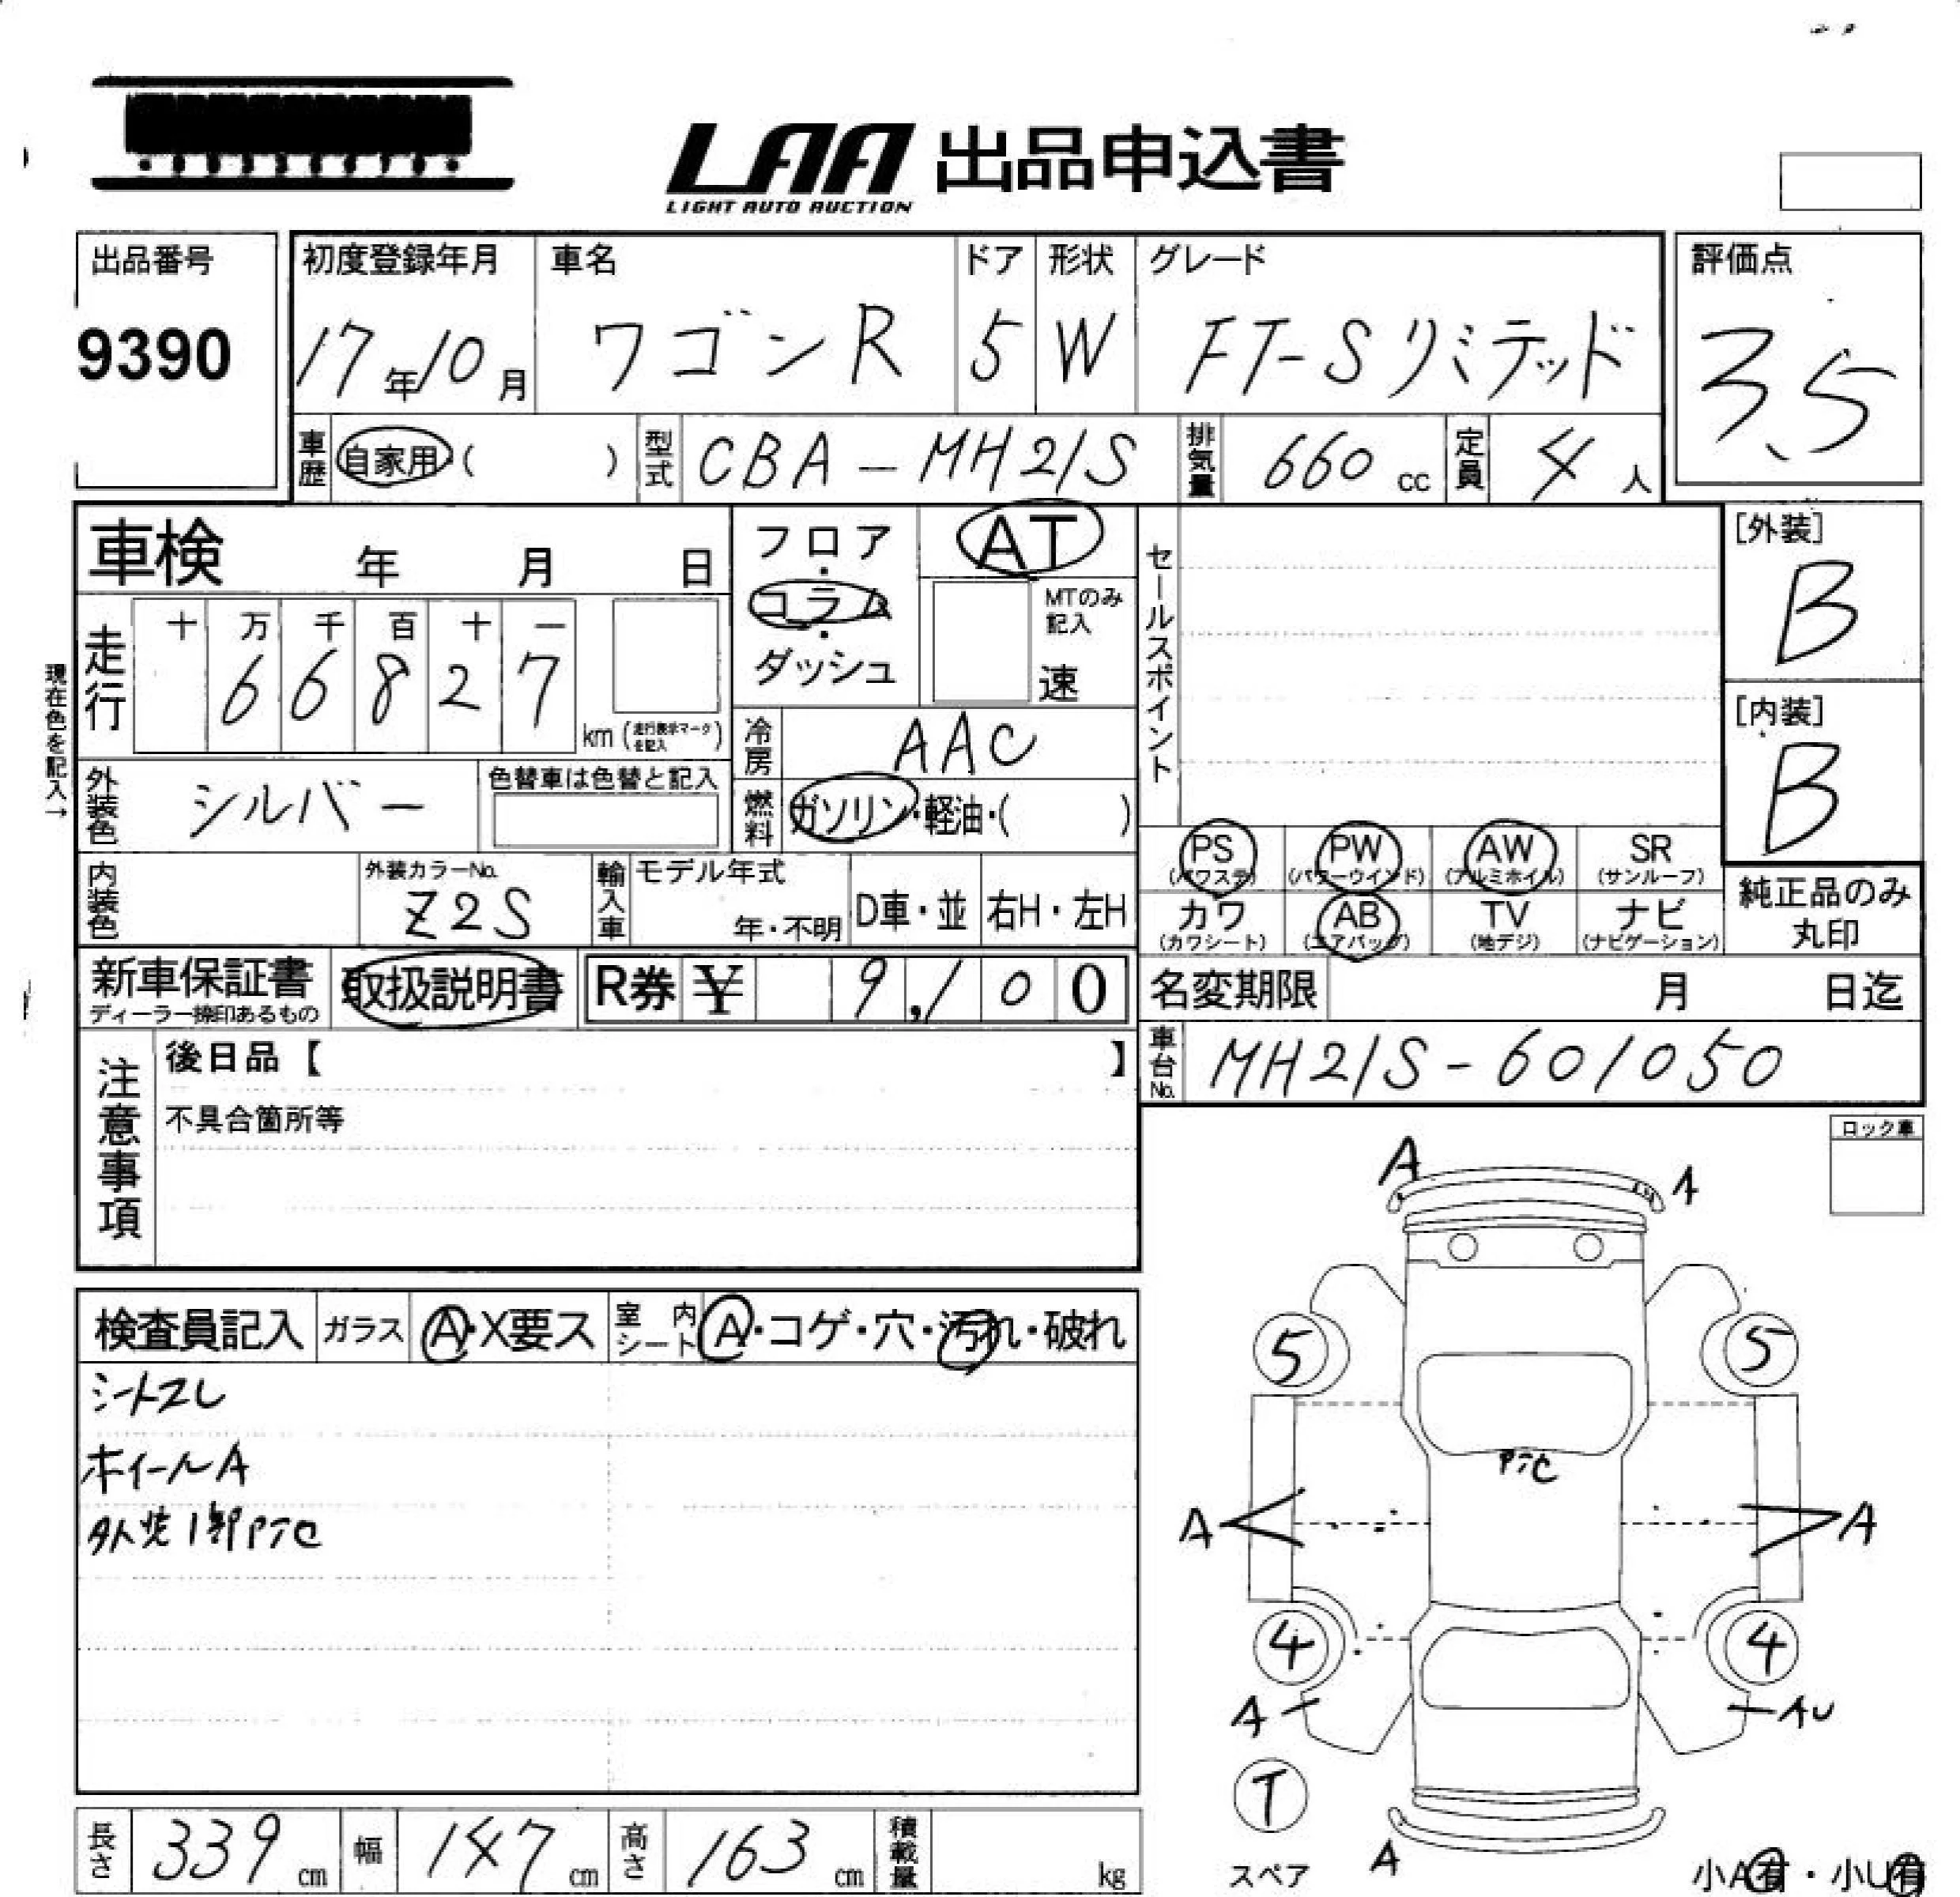 LAA 出品申込書
LIGHT AUTO AUCTION
出品番号
9390
初度登録年月 車名 ドア 形状 グレード 評価点
17年10月 ワゴンR 5 W FT-Sリミテッド 3.5
車歴 自家用・( ) 型式 CBA-MH21S 排気量 660 cc 定員 4 人
車検 年 月 日
フロア・コラム・ダッシュ
AT
MTのみ記入
速
セールスポイント
[外装]
B
[内装]
B
現在色を記入→
走行 十 万 千 百 十 一
6 6 8 2 7 km (走行表示マークを記入)
冷房 AAC
外装色 シルバー 色替車は色替と記入
燃料 ガソリン・軽油・( )
PS (パワステ) PW (パワーウインド) AW (アルミホイル) SR (サンルーフ)
カワ (カワシート) AB (エアバッグ) TV (地デジ) ナビ (ナビゲーション)
純正品のみ丸印
内装色 外装カラーNo. Z2S 輸入車 モデル年式 年・不明 D車・並 右H・左H
新車保証書 ディーラー捺印あるもの 取扱説明書 R券 ¥ 9,100
名変期限 月 日迄
車台No. MH21S-601050
注意事項
後日品【 】
不具合箇所等
ロック車
検査員記入 ガラス A・X要ス 室内シート A・コゲ・穴・汚れ・破れ
シートスレ
ホイールA
外装1部Pﾃｶ
A A
5 5
Pﾃｶ
A A
4 4
A AU
T
スペア
A
小A有・小U有
長さ 339 cm 幅 147 cm 高さ 163 cm 積載量 kg